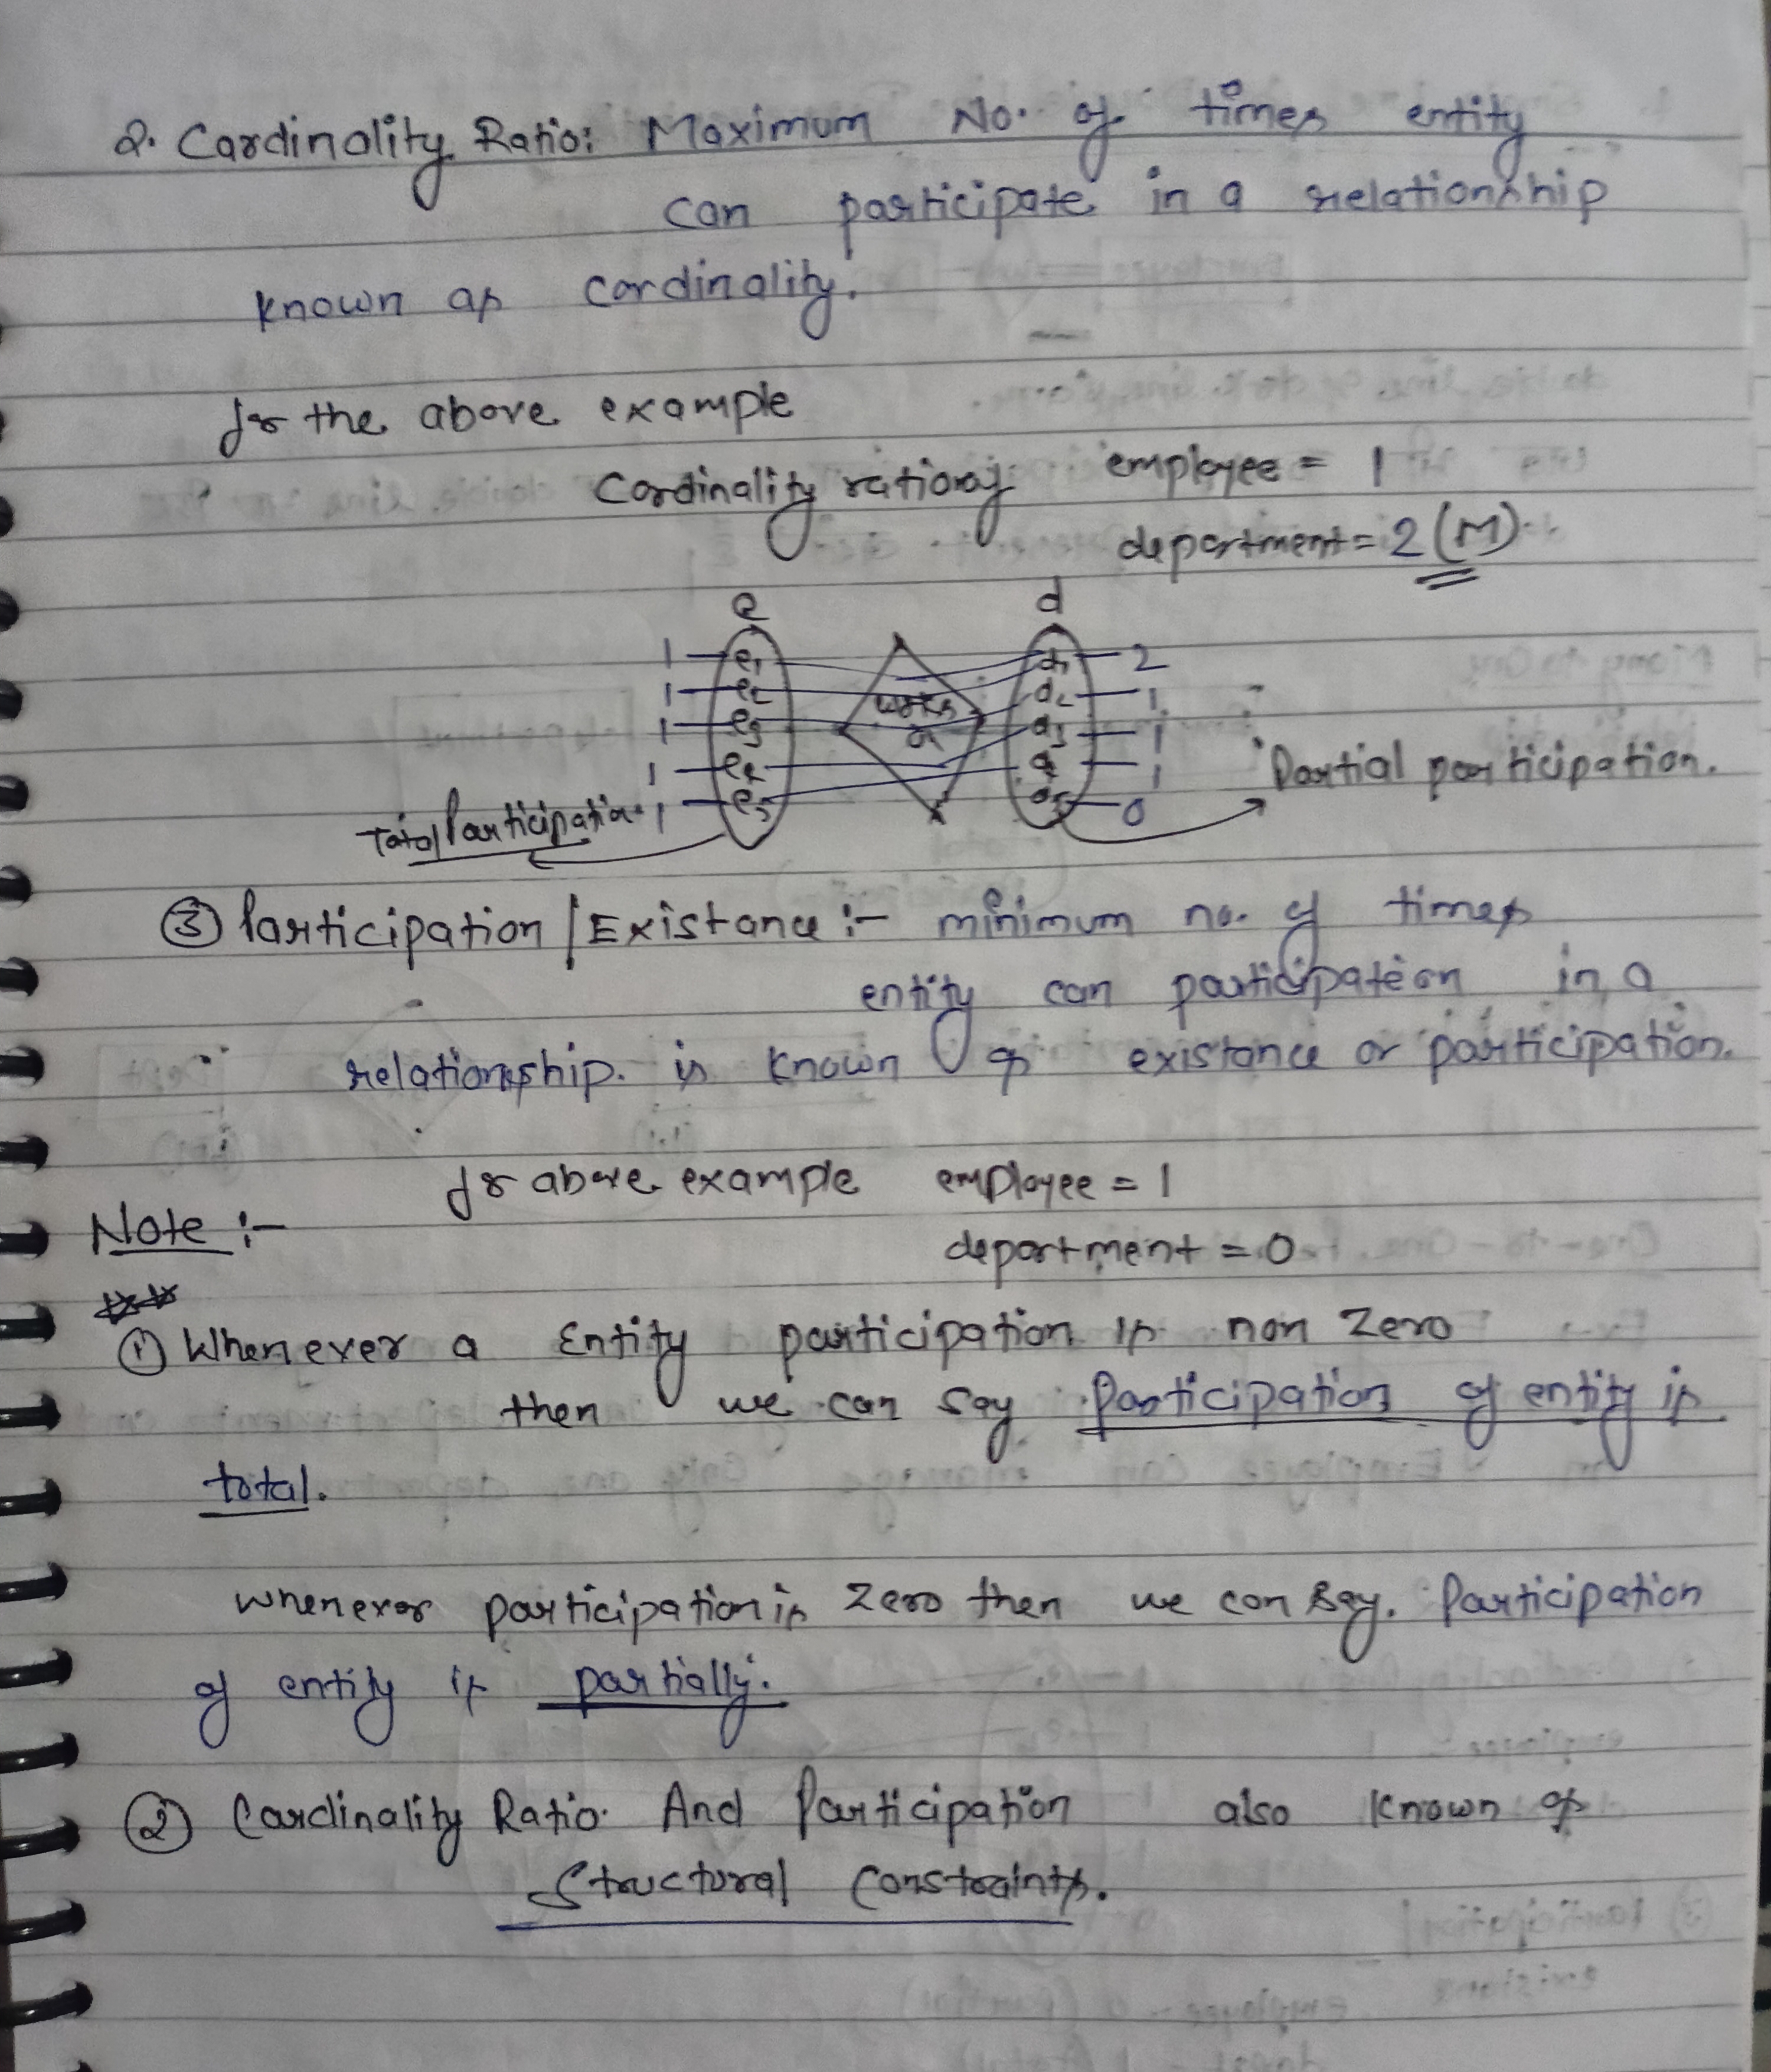 2. Cardinality Ratio: Maximum No. of times entity
can participate in a relationship
known as cardinality.
for the above example
Cardinality ratio of employee = 1
department = 2 (M)
e d
1 e1 d1 2
1 e2 d2 1
works
1 e3 d3 1
1 e4 1
Partial participation.
1 e5 d5 0
Total Participation
③ Participation / Existance :- minimum no. of times
entity can participateion in a
relationship. is known as existance or participation.
for above example employee = 1
Note :-
department = 0
① Whenever a Entity participation is non Zero
then we can say Participation of entity is
total.
whenever participation is Zero then we can say. Participation
of entity is partially.
② Cardinality Ratio And Participation also known as
Structural Constraints.